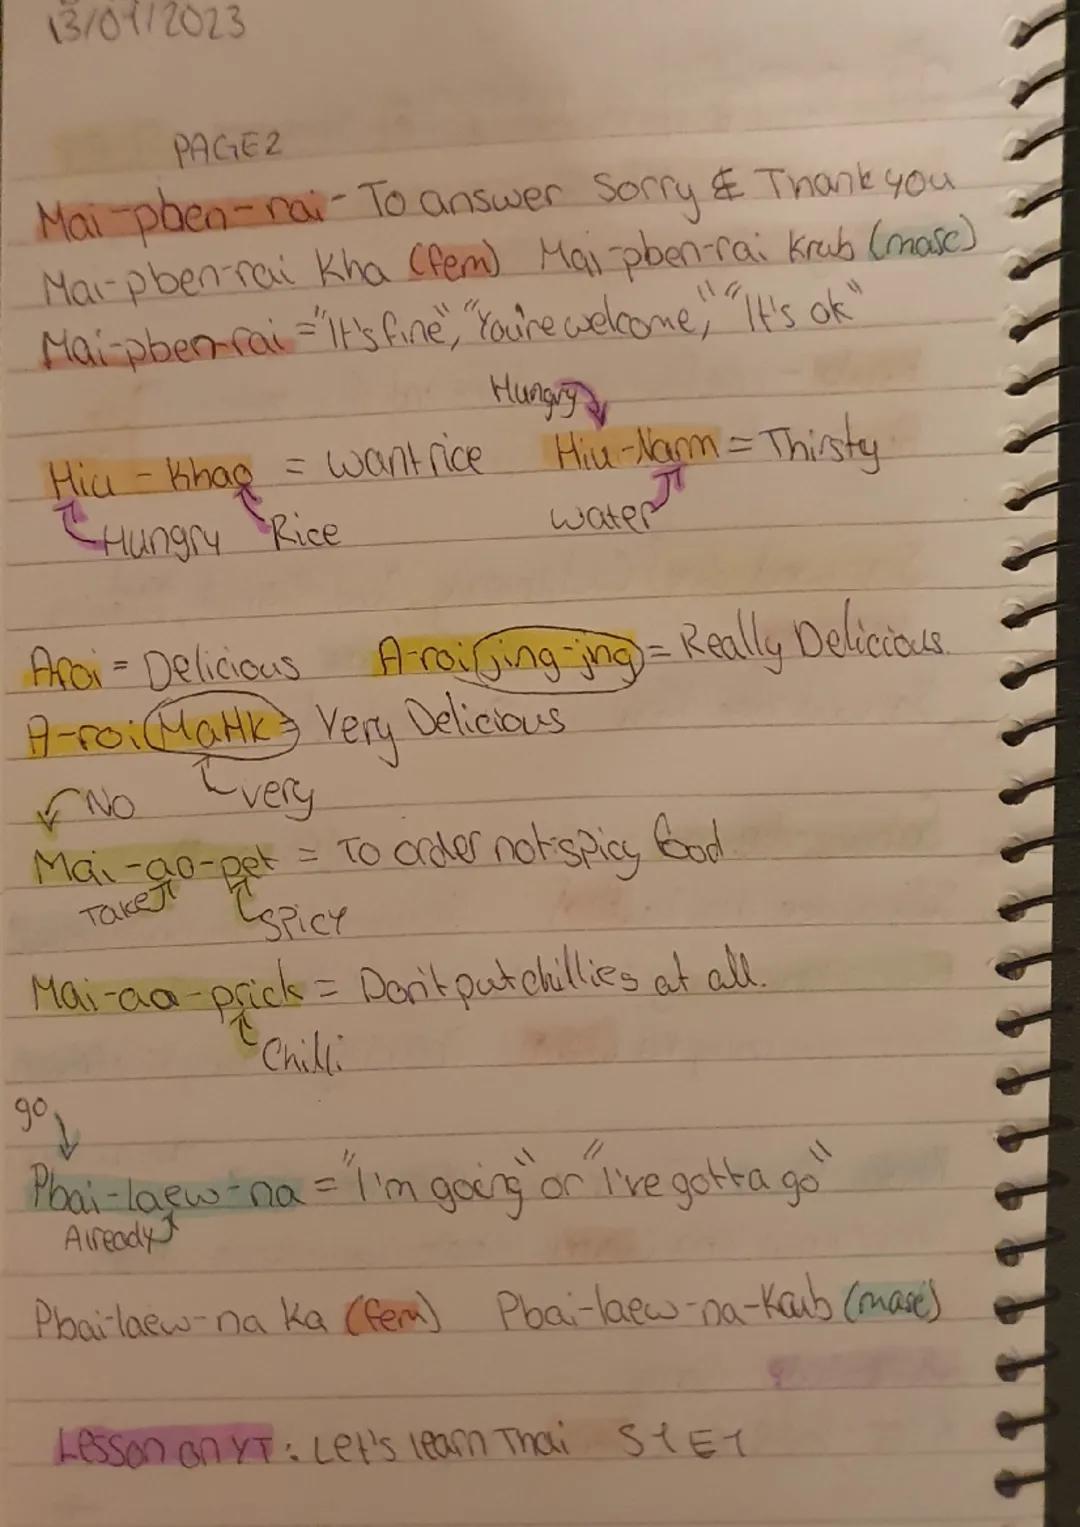 13/01/2023
PAGE2
Mai-pben-rai- To answer Sorry & Thank you
Mai-pben-rai Kha (fem) Mai-pben-rai Krub (masc)
Mai-pben-rai = "It's fine", "You're welcome," "It's ok"
Hungry
Hiu - Khao = want rice Hiu-Narm = Thirsty
Hungry Rice water
Aroi = Delicious A-roi jing-jing = Really Delicious.
A-roi MaHk = Very Delicious
No very
Mai-ao-pet = To order not spicy food
Take SPICY
Mai-ao-prick = Don't put chillies at all.
Chilli
go
Pbai-laew-na = "I'm going" or "I've gotta go"
Already
Pbai-laew-na Ka (fem) Pbai-laew-na-Krub (masc)
Lesson on YT: Let's learn Thai S1 E1